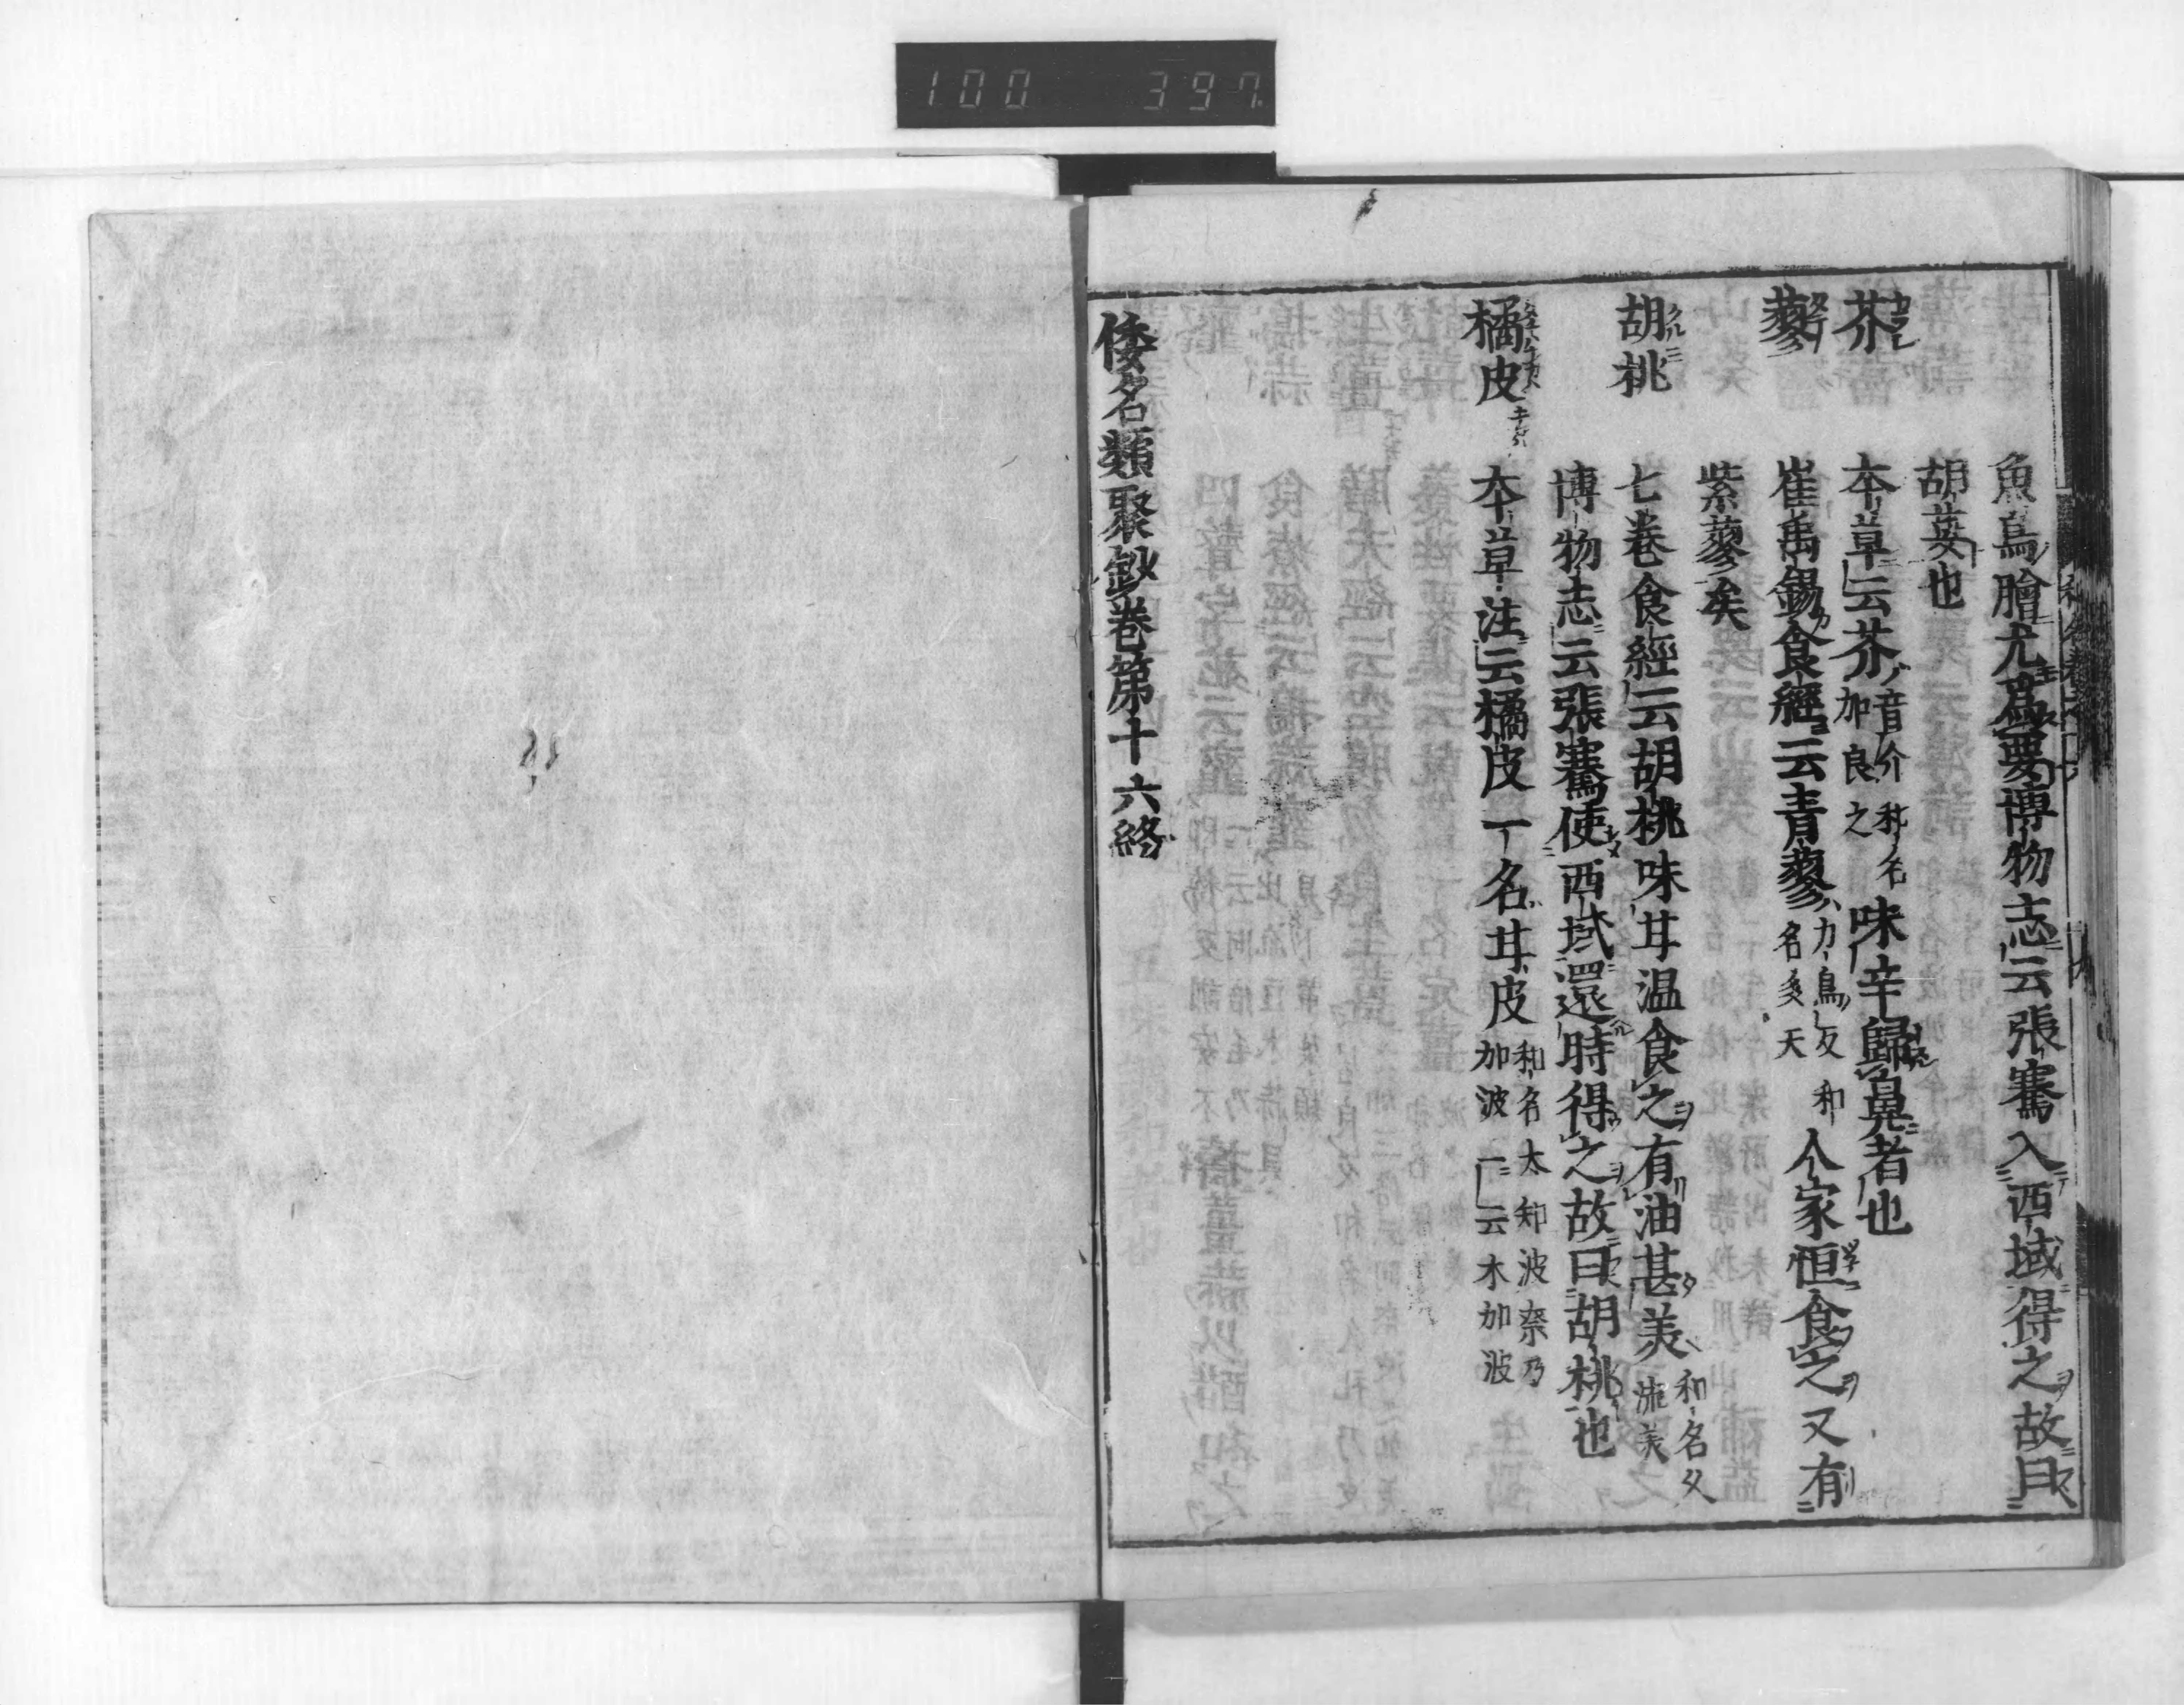 100 397
魚鳥膾尤為要博物志云張騫入西域得之故曰
胡荾也
芥 本草云芥音介和名加良之味辛歸鼻者也
蓼 崔禹錫食經云青蓼力鳥反和名多天人家恒食之又有
紫蓼矣
胡桃 七卷食經云胡桃味甘温食之有油甚美和名久流美
博物志云張騫使西域還時得之故曰胡桃也
橘皮 本草注云橘皮一名甘皮和名太知波奈乃加波一云木加波
倭名類聚鈔卷第十六終